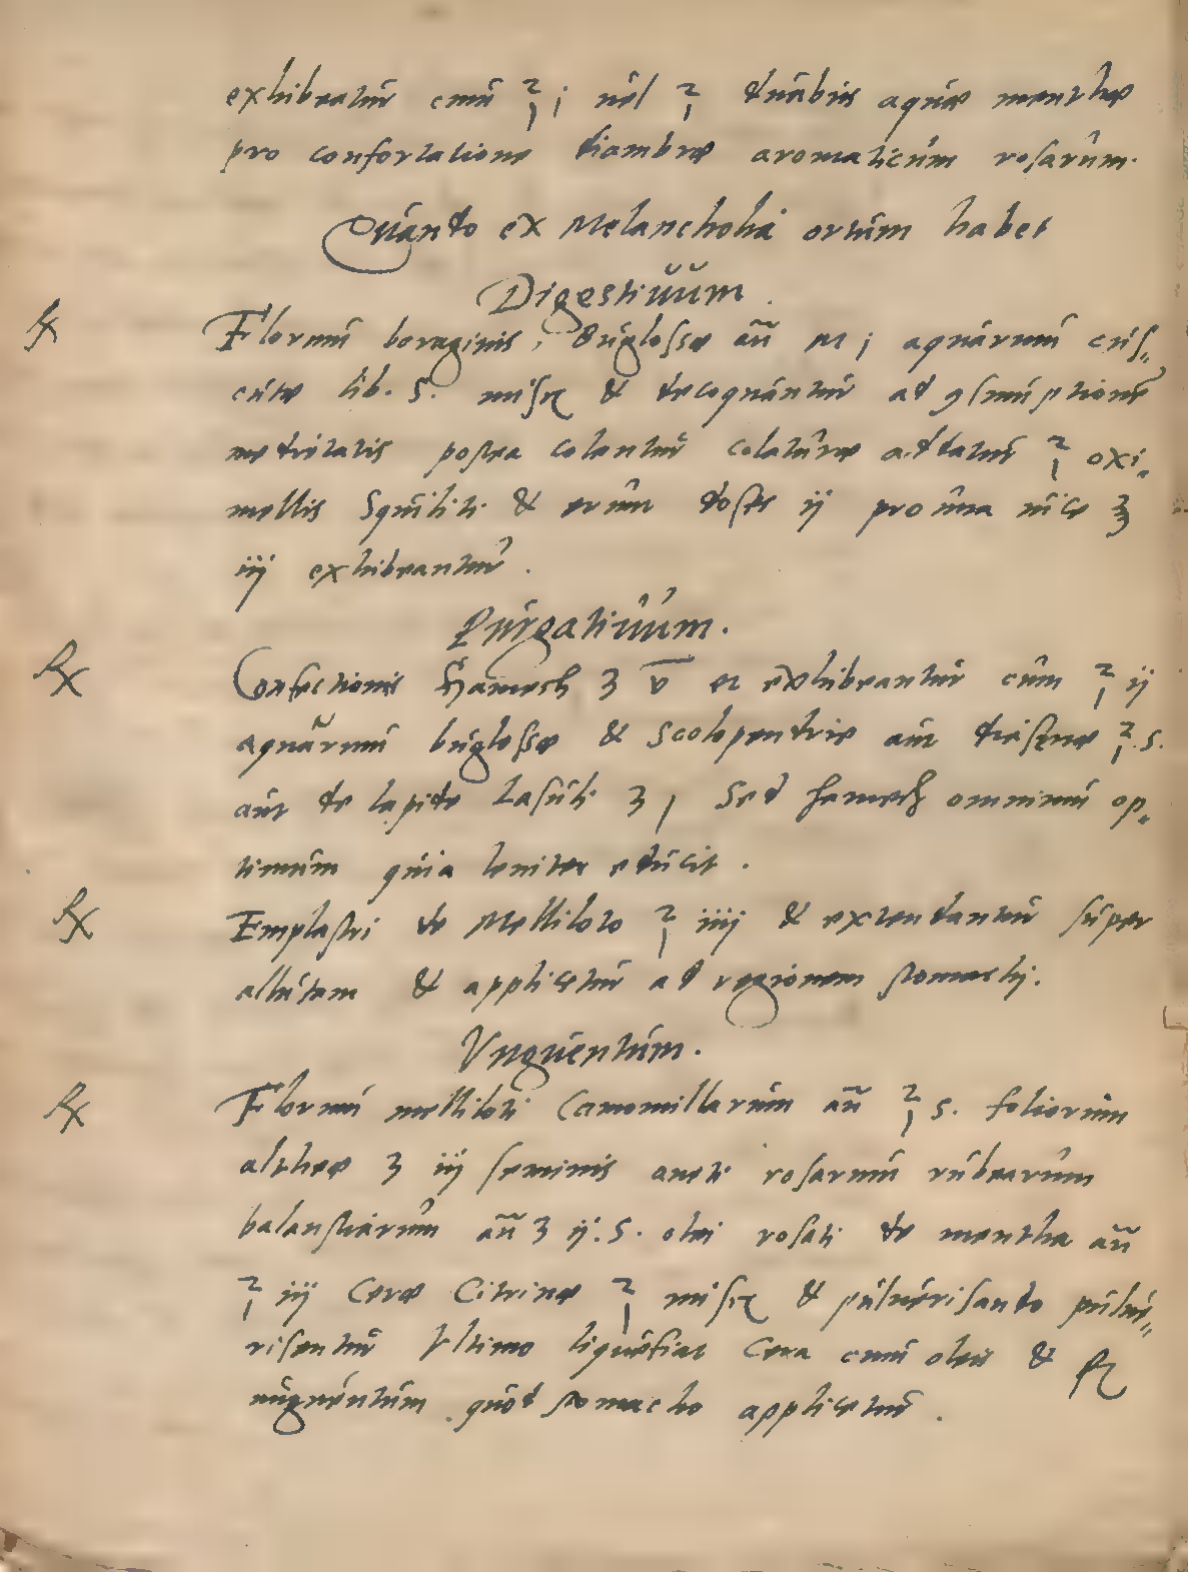 exhibeatur cum ℥ j vel ℥ duabus aquæ menthæ
pro confortatione diambræ aromaticum rosarum.
Quando ex Melancholia ortum habet
Digestiuum.
℞ Florum boraginis, Buglossæ añ m j aquarum cus=
cutæ lib. s. misce & decoquantur ad ꝯsumptionẽ
medietatis postea colentur colaturæ addatur ℥ oxi=
mellis Squilliti & erunt doses ij pro una vice ℥
iij exhibeantur.
Purgatiuum.
℞ Confectionis Hamech ʒ v et exhibeantur cum ℥ ij
aquarum buglossæ & Scolopendriæ aut diasenæ ℥ s.
aut de lapide Lasuli ʒ j Sed hamech omnium op=
timum quia leniter educit.
℞ Emplastri de Melliloto ℥ iiij & extendantur super
allutam & applicetur ad regionem stomachj.
Vnguentum.
℞ Florum melliloti Camomillarum añ ℥ s. foliorum
altheæ ʒ iij seminis aneti rosarum rubearum
balaustiarum añ ʒ ij. s. olei rosati de mentha añ
℥ iij Ceræ Citrinæ ℥ j misce & puluerisando pulue=
risentur Vltimo liquefiat Cera cum oleis & ft
unguentum quod stomacho applicetur.